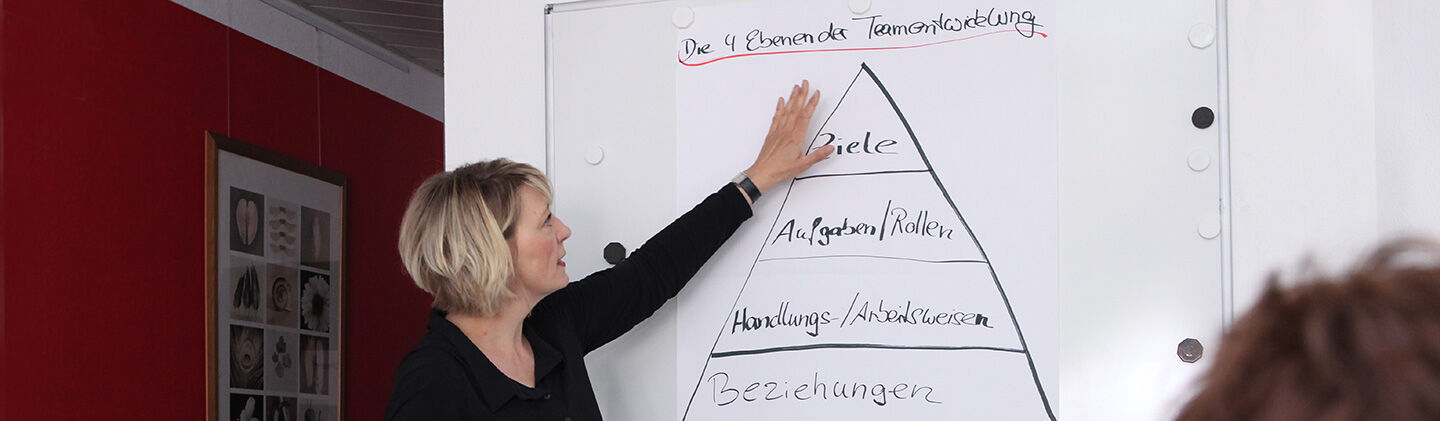 Die 4 Ebenen der Teamentwicklung
Ziele
Aufgaben/Rollen
Handlungs-/Arbeitsweisen
Beziehungen